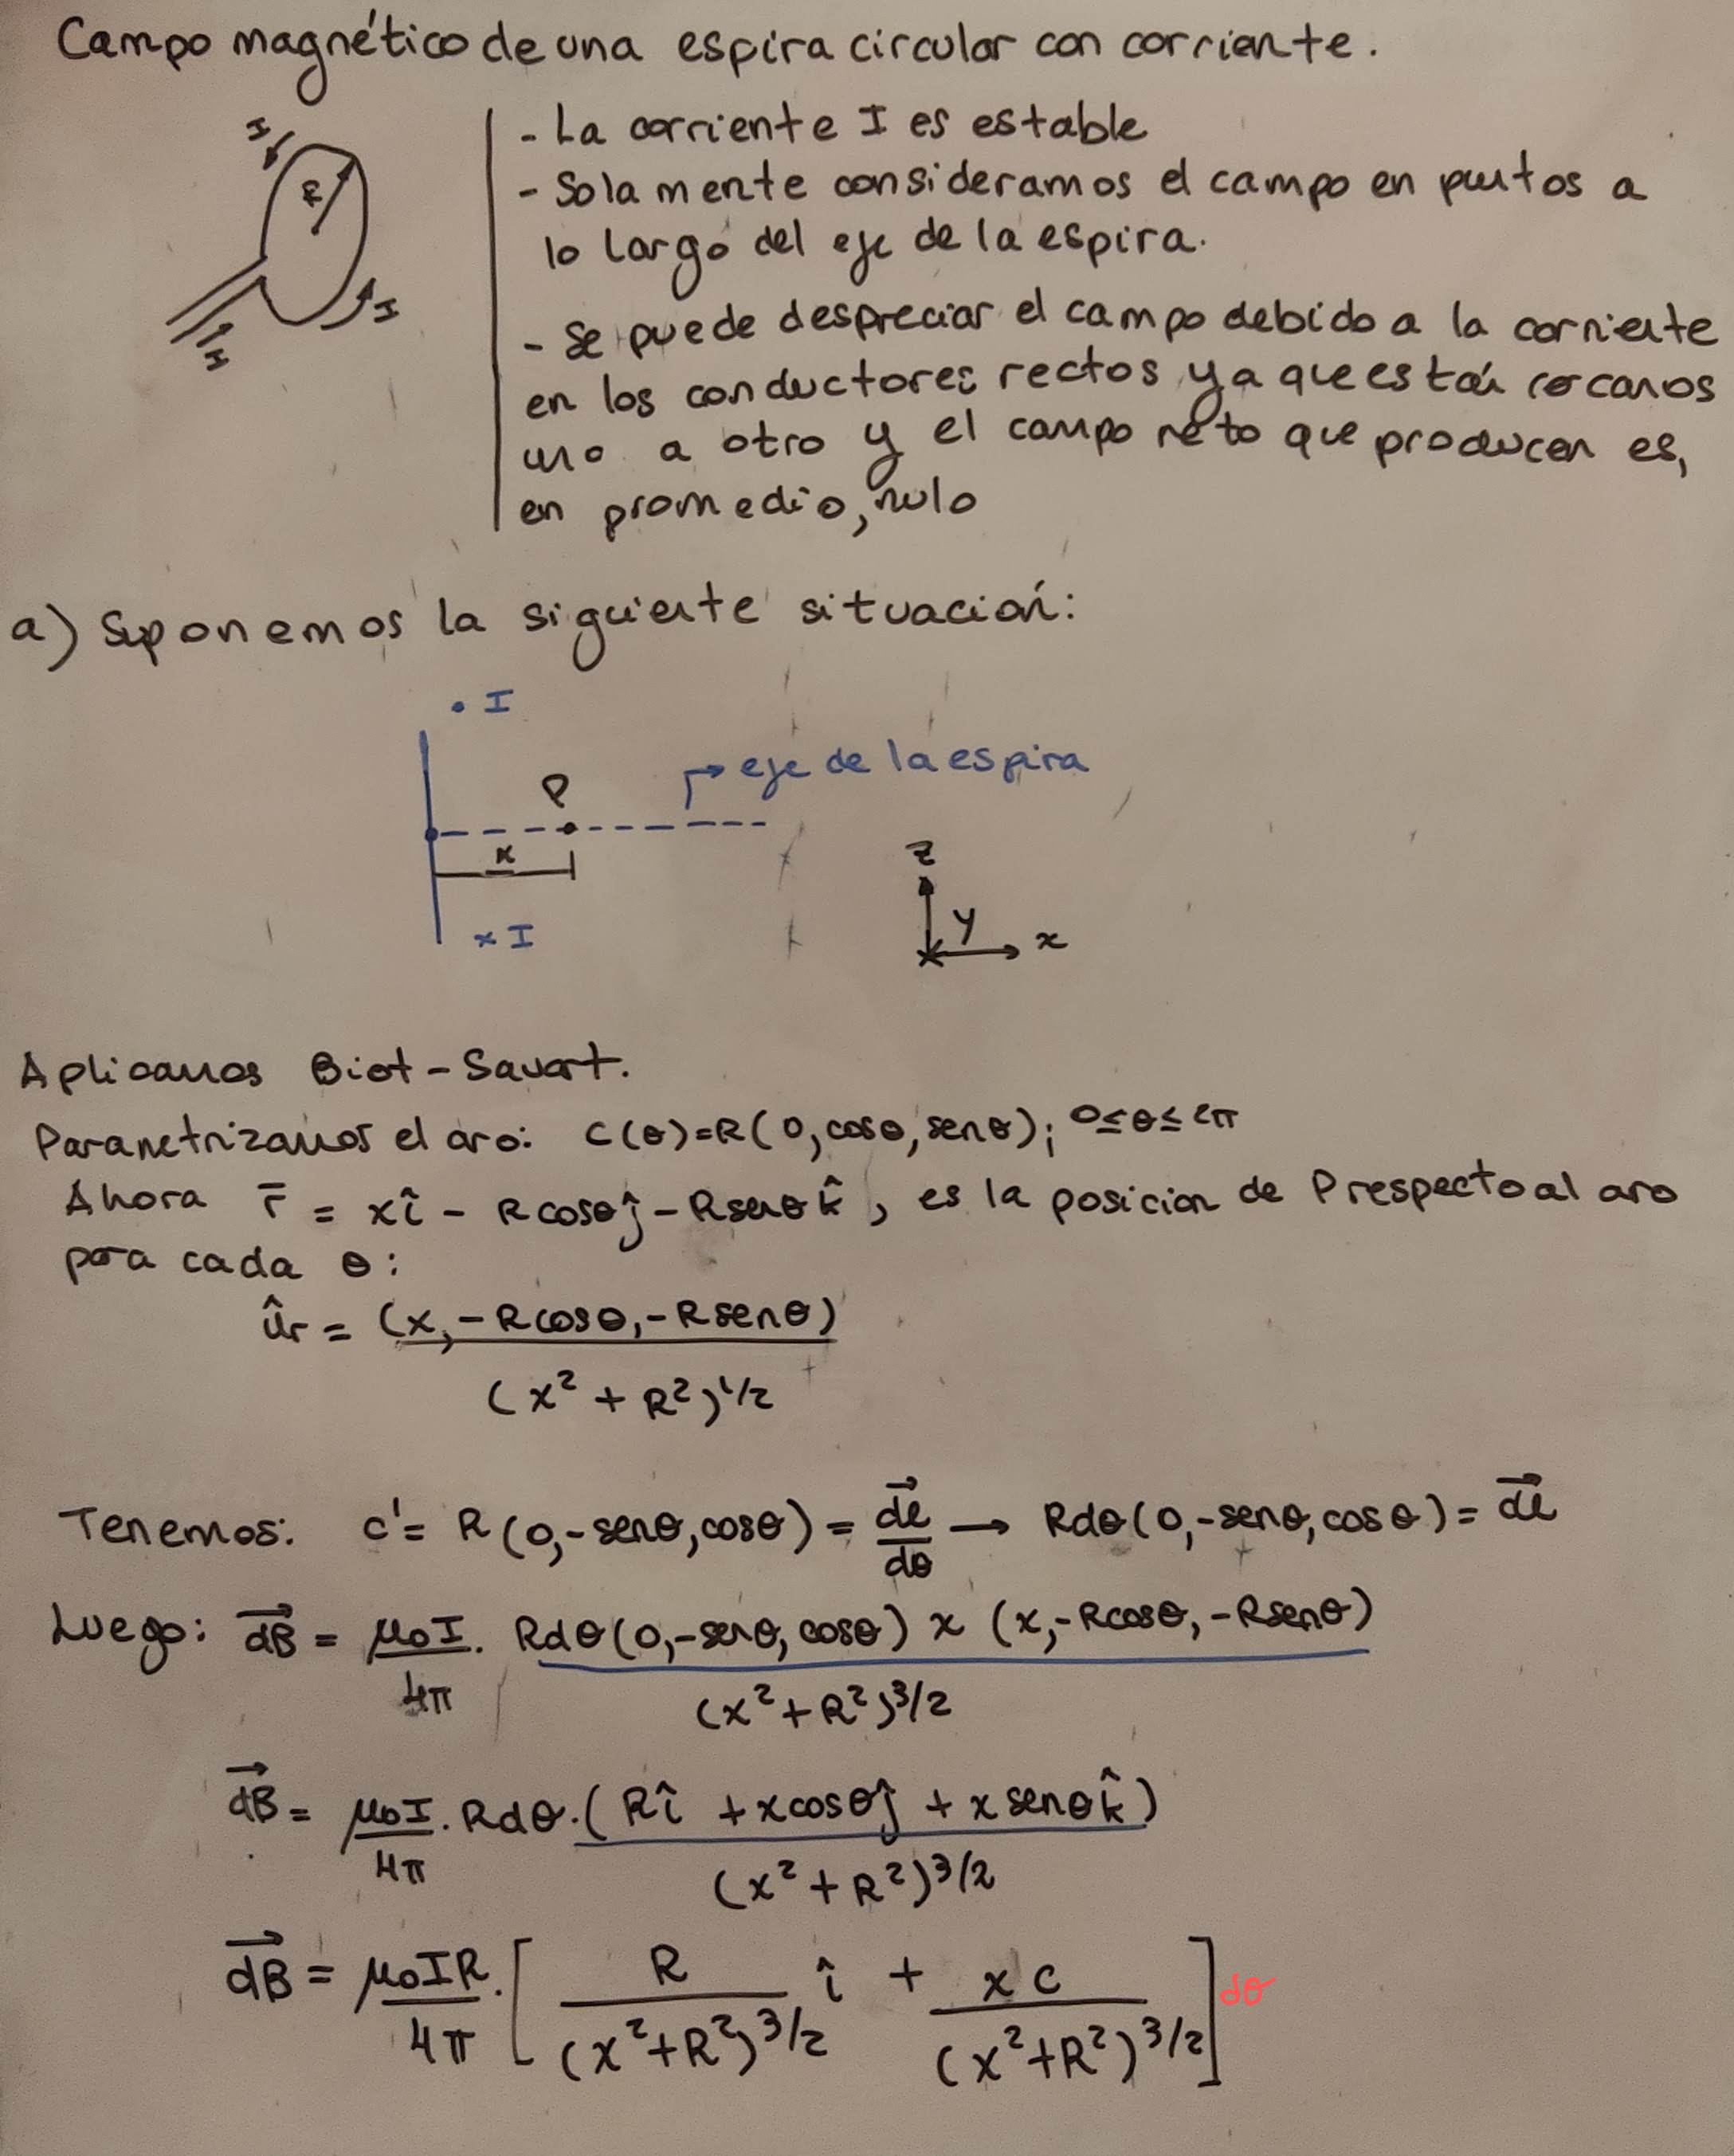 Campo magnético de una espira circular con corriente.
I
R
I
I
- La corriente I es estable
- Solamente consideramos el campo en puntos a
lo largo del eje de la espira.
- Se puede despreciar el campo debido a la corriente
en los conductores rectos ya que están cercanos
uno a otro y el campo neto que producen es,
en promedio, nulo
a) Suponemos la siguiente situación:
. I
→ eje de la espira
P
x
x I
z
y
x
Aplicamos Biot-Savart.
Parametrizamos el aro: C(θ)=R(0,cosθ,senθ); 0≤θ≤2π
Ahora r̄ = xî - Rcosθĵ - Rsenθk̂, es la posicion de P respecto al aro
para cada θ:
ûr = (x,-Rcosθ,-Rsenθ)
(x² + R²)^1/2
Tenemos: c' = R(0,-senθ,cosθ) = dl⃗/dθ → Rdθ(0,-senθ,cosθ) = dl⃗
Luego: dB⃗ = μ₀I/4π . Rdθ(0,-senθ,cosθ) x (x,-Rcosθ,-Rsenθ)
(x²+R²)^3/2
dB⃗ = μ₀I/4π . Rdθ.(Rî + xcosθĵ + xsenθk̂)
(x²+R²)^3/2
dB⃗ = μ₀IR/4π . [R/(x²+R²)^3/2 î + x c/(x²+R²)^3/2] dθ